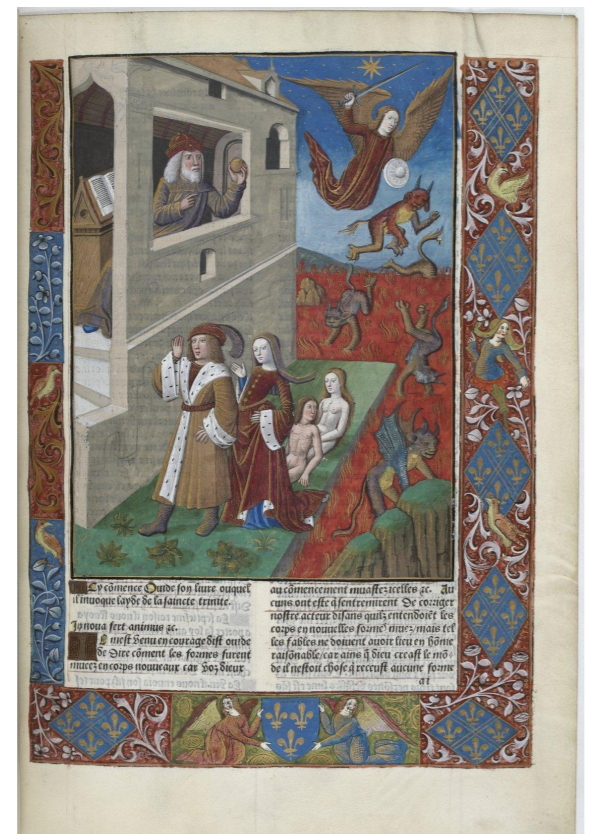 Cy cõmence Ouide son liure ouquel
il inuoque layde de la saincte trinite.
In noua fert animus ⁊c.
Il mest venu en courage dist ouide
de dire cõment les formes furent
muees en corps nouueaux car voz dieux
au cõmencement muastez icelles ⁊c. Au
cuns ont este q̃ sentremirent de corriger
nostre acteur disans quilz entendoiẽt les
corps en nouuelles forme᷒ muez / mais tel
les fables ne doiuent auoir lieu en hõme
raisonable / car ains q̃ dieu creast le mõ
de il nestoit chose q̃ receust aucune forme
ai